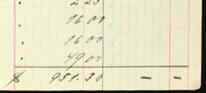 2 25
16 00
16 00
49 00
$ 951.30 — —